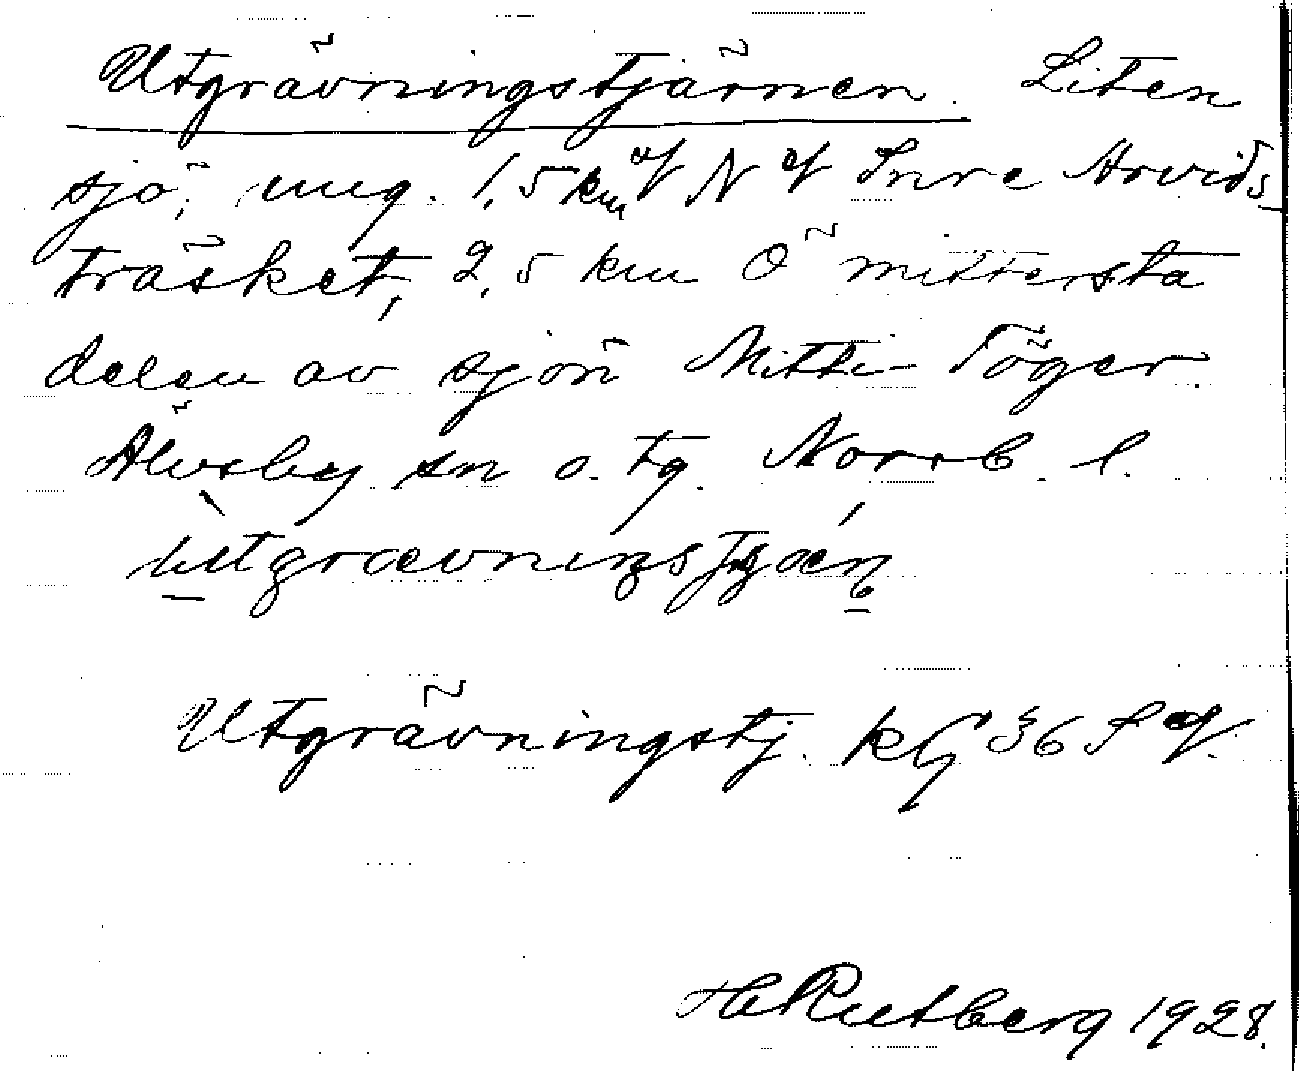 Utgrävningstjärnen. Liten
sjö, ung. 1,5 km N Inre Arvids-
träsket, 2,5 km Ö mittersta
delen av sjön Mitti-Töger.
Älvsby sn o. tg. Norrb. l.
Utgrävningstj. kbl 36
H Rutberg 1928.